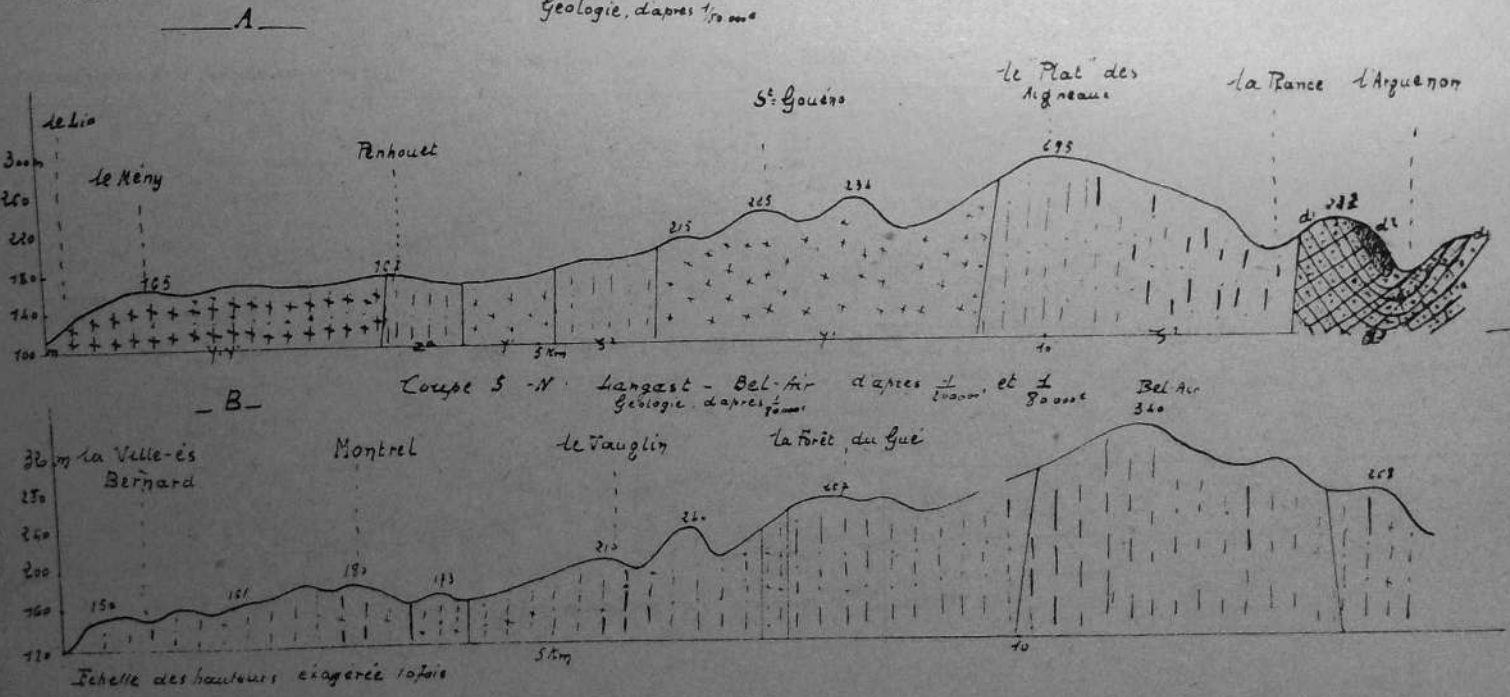 Géologie, d'après 1/50.000e
A
le Lio
le Mény
Penhouët
St-Gouéno
le "Plat" des
Aigneaux
la Rance
l'Arguenon
300 m
220
180
140
100 m
165
215
225
695
d1
d2
5 Km
10
Coupe S-N. Langast - Bel-Air d'après 1/200000e et 1/80000e
Géologie, d'après 1/80000e
B
la Ville-és
Bernard
Montrel
le Vauglin
la Forêt du Gué
Bel-Air
340
240
200
160
120
150
161
180
173
210
240
257
258
5 Km
10
Echelle des hauteurs exagérée 10 fois